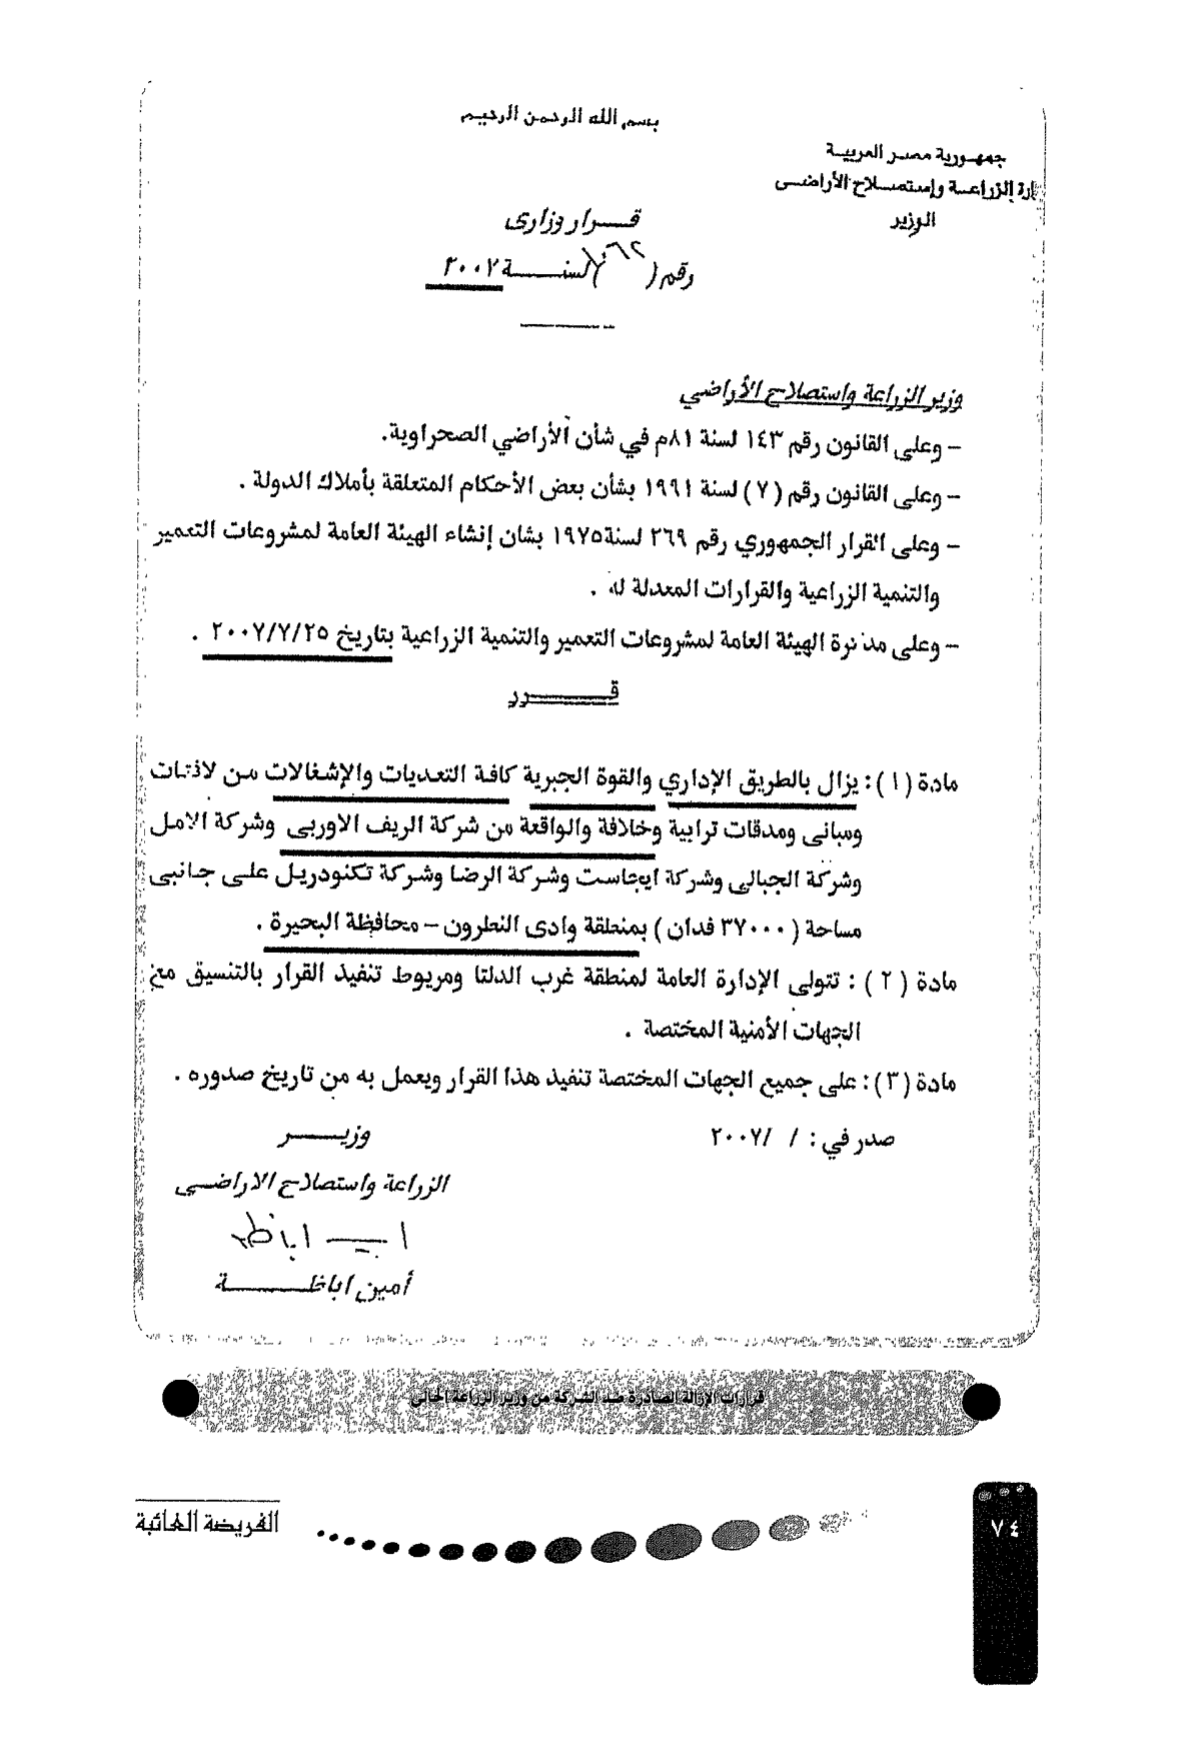 بسم الله الرحمن الرحيم
جمهورية مصر العربية
ارة الزراعة وإستصلاح الأراضى
الوزير
قرار وزارى
رقم ( ) لسنة ٢٠٠٧
وزير الزراعة واستصلاح الأراضي
– وعلى القانون رقم ١٤٣ لسنة ٨١م في شأن الأراضي الصحراوية.
– وعلى القانون رقم (٧) لسنة ١٩٩١ بشأن بعض الأحكام المتعلقة بأملاك الدولة .
– وعلى القرار الجمهوري رقم ٢٦٩ لسنة١٩٧٥ بشان إنشاء الهيئة العامة لمشروعات التعمير
والتنمية الزراعية والقرارات المعدلة له .
– وعلى مذكرة الهيئة العامة لمشروعات التعمير والتنمية الزراعية بتاريخ ٢٠٠٧/٧/٢٥ .
قــرر
مادة (١): يزال بالطريق الإداري والقوة الجبرية كافة التعديات والإشغالات من لافتات
ومبانى ومدقات ترابية وخلافة والواقعة من شركة الريف الاوربى وشركة الامل
وشركة الجبالى وشركة ايجاست وشركة الرضا وشركة تكنودريل على جانبى
مساحة (٣٧٠٠٠ فدان) بمنطقة وادى النطرون – محافظة البحيرة .
مادة (٢) : تتولى الإدارة العامة لمنطقة غرب الدلتا ومريوط تنفيذ القرار بالتنسيق مع
الجهات الأمنية المختصة .
مادة (٣): على جميع الجهات المختصة تنفيذ هذا القرار ويعمل به من تاريخ صدوره .
صدر في : / /٢٠٠٧
وزيــر
الزراعة واستصلاح الاراضى
أمين اباظة
قرارات الإزالة الصادرة ضد الشركة من وزير الزراعة الحالى
الفريضة الغائبة
٧٤